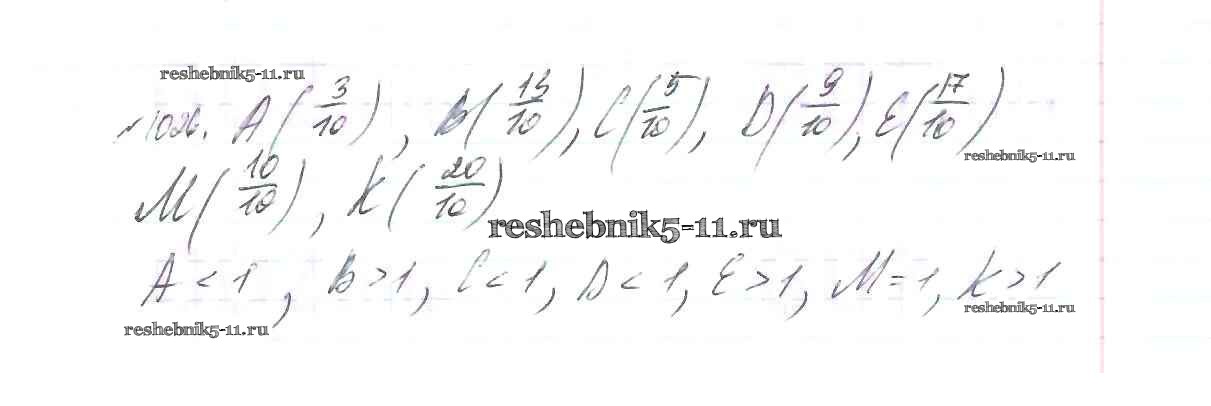 reshebnik5-11.ru
№1026. A(3/10), B(13/10), C(5/10), D(9/10), E(17/10)
reshebnik5-11.ru
M(10/10), K(20/10)
reshebnik5-11.ru
A < 1, B > 1, C < 1, D < 1, E > 1, M = 1, K > 1
reshebnik5-11.ru
reshebnik5-11.ru